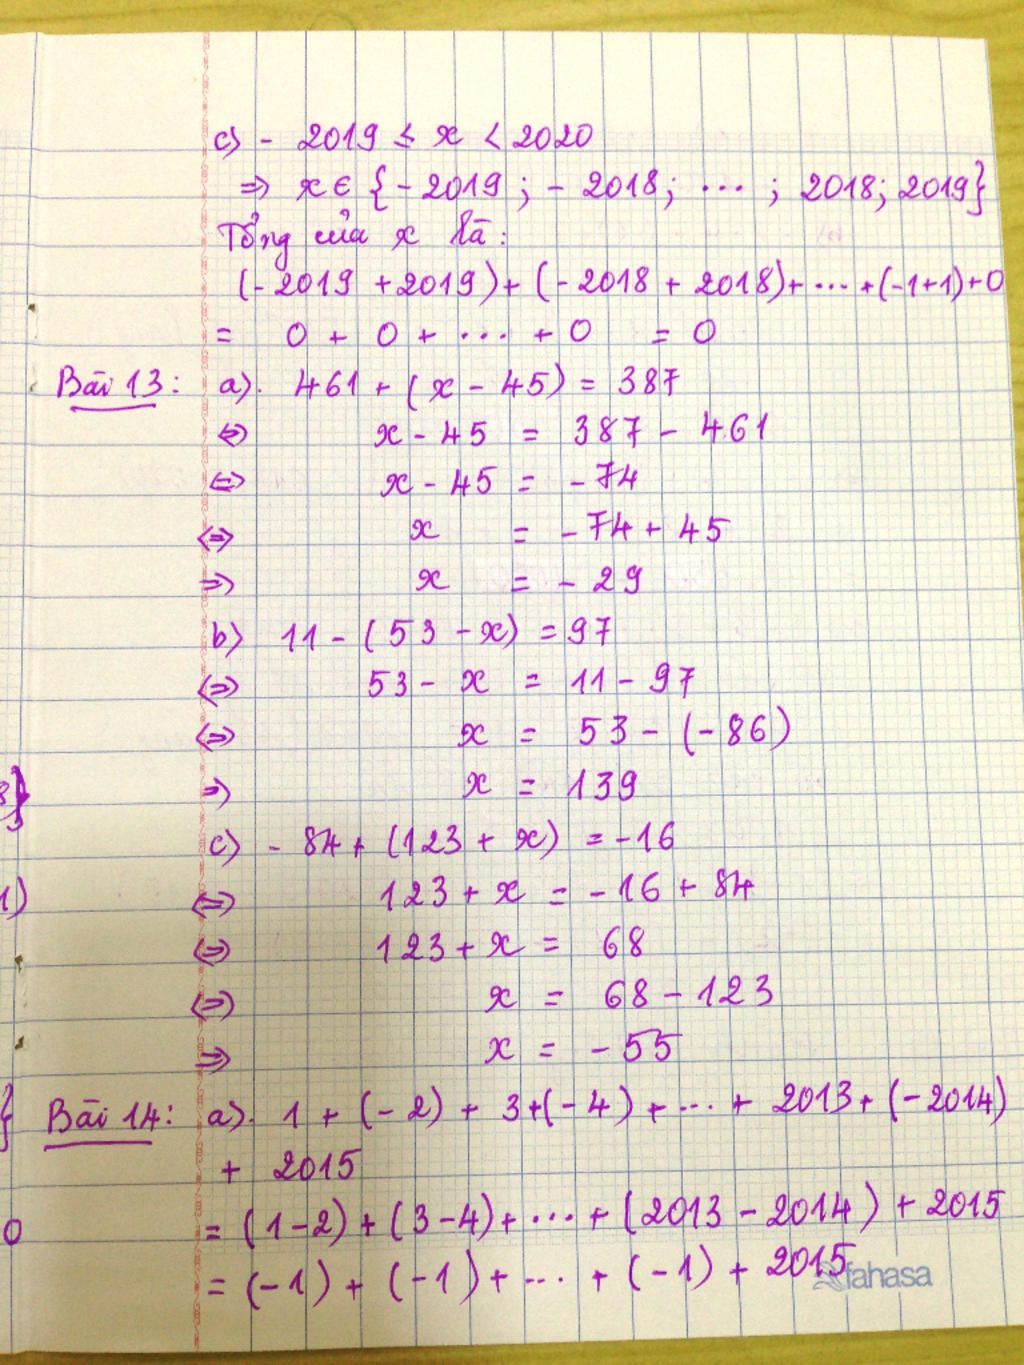 c) - 2019 ≤ x < 2020
⇒ x ∈ {- 2019 ; - 2018; ... ; 2018; 2019}
Tổng của x là:
(- 2019 + 2019) + (- 2018 + 2018) + ... + (-1+1) + 0
= 0 + 0 + ... + 0 = 0
Bài 13: a). 461 + (x - 45) = 387
⇔ x - 45 = 387 - 461
⇔ x - 45 = - 74
⇔ x = - 74 + 45
⇒ x = - 29
b) 11 - (53 - x) = 97
⇔ 53 - x = 11 - 97
⇔ x = 53 - (- 86)
⇒ x = 139
c) - 84 + (123 + x) = -16
⇔ 123 + x = - 16 + 84
⇔ 123 + x = 68
⇔ x = 68 - 123
⇒ x = - 55
Bài 14: a). 1 + (- 2) + 3 + (- 4) + ... + 2013 + (- 2014)
+ 2015
= (1 - 2) + (3 - 4) + ... + (2013 - 2014) + 2015
= (-1) + (-1) + ... + (-1) + 2015
fahasa
8}
1)
}
0